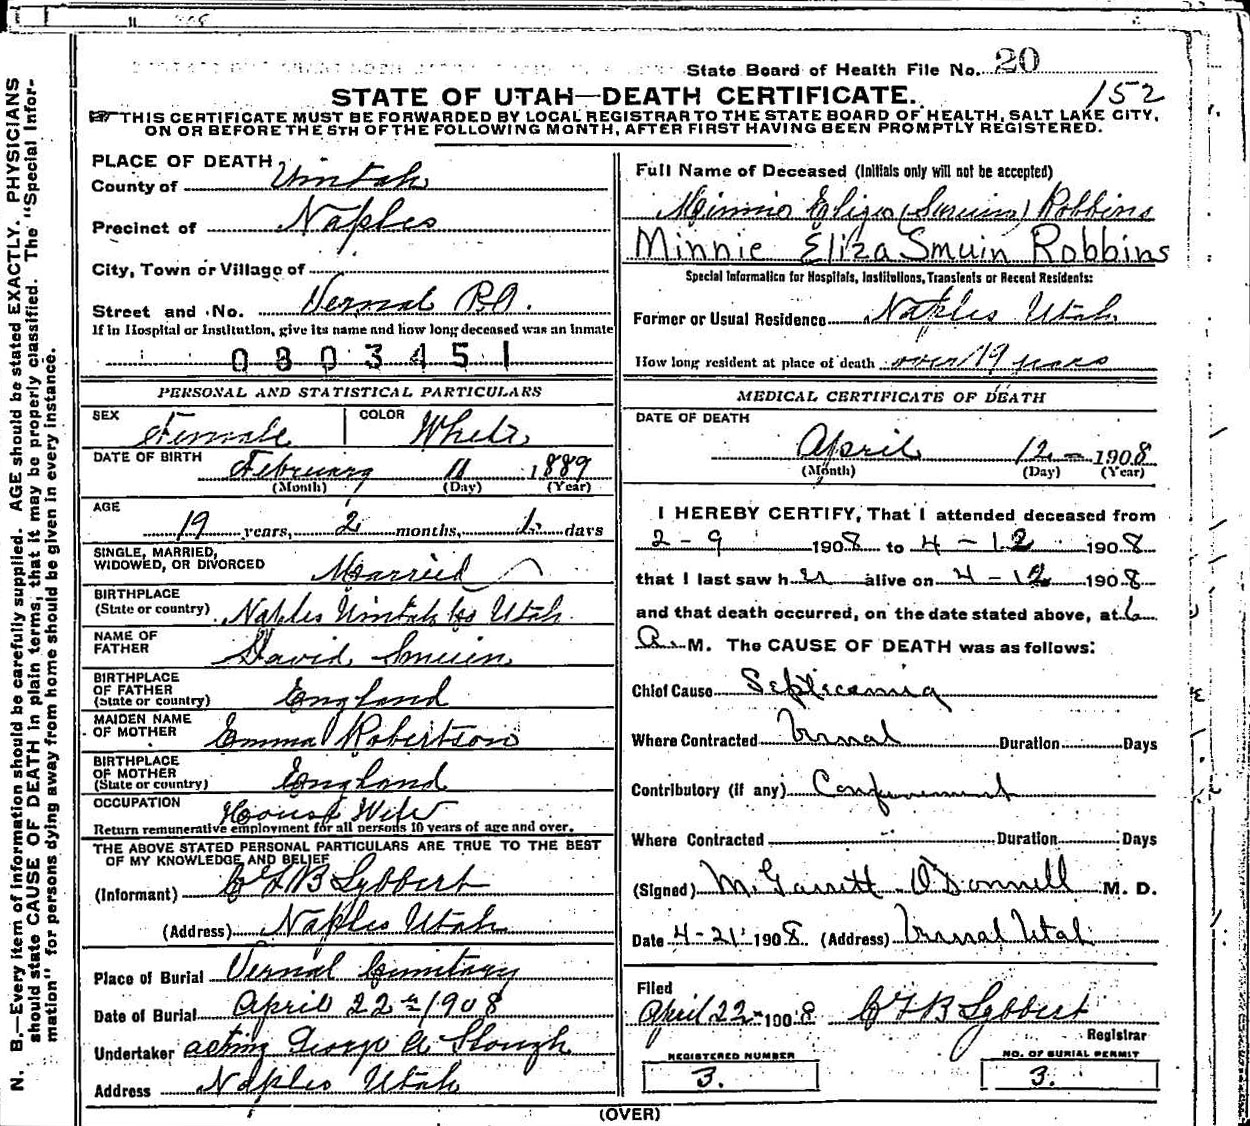 State Board of Health File No. 20
152
STATE OF UTAH—DEATH CERTIFICATE.
THIS CERTIFICATE MUST BE FORWARDED BY LOCAL REGISTRAR TO THE STATE BOARD OF HEALTH, SALT LAKE CITY,
ON OR BEFORE THE 5TH OF THE FOLLOWING MONTH, AFTER FIRST HAVING BEEN PROMPTLY REGISTERED.
PLACE OF DEATH
County of Uintah
Precinct of Naples
City, Town or Village of
Street and No. Vernal P.O.
If in Hospital or Institution, give its name and how long deceased was an inmate
0803451
PERSONAL AND STATISTICAL PARTICULARS
SEX Female COLOR White
DATE OF BIRTH February 11 1889
(Month) (Day) (Year)
AGE
19 years, 2 months, 1 days
SINGLE, MARRIED,
WIDOWED, OR DIVORCED Married
BIRTHPLACE
(State or country) Naples Uintah Co Utah
NAME OF
FATHER David Smuin
BIRTHPLACE
OF FATHER
(State or country) England
MAIDEN NAME
OF MOTHER Emma Robertson
BIRTHPLACE
OF MOTHER
(State or country) England
OCCUPATION House Wife
Return remunerative employment for all persons 10 years of age and over.
THE ABOVE STATED PERSONAL PARTICULARS ARE TRUE TO THE BEST
OF MY KNOWLEDGE AND BELIEF
(Informant) C F B Lybbert
(Address) Naples Utah
Place of Burial Vernal Cemitary
Date of Burial April 22 1908
Undertaker acting George A Slough
Address Naples Utah
Full Name of Deceased (Initials only will not be accepted)
Minnie Eliza (Smuin) Robbins
Minnie Eliza Smuin Robbins
Special Information for Hospitals, Institutions, Transients or Recent Residents:
Former or Usual Residence Naples Utah
How long resident at place of death over 19 years
MEDICAL CERTIFICATE OF DEATH
DATE OF DEATH
April 12 1908
(Month) (Day) (Year)
I HEREBY CERTIFY, That I attended deceased from
2-9 1908 to 4-12 1908
that I last saw her alive on 4-12 1908
and that death occurred, on the date stated above, at 6
A M. The CAUSE OF DEATH was as follows:
Chief Cause Septicemia
Where Contracted Vernal Duration Days
Contributory (if any) Confinement
Where Contracted Duration Days
(Signed) M. Garrett O'Donnell M. D.
Date 4-21 1908 (Address) Vernal Utah
Filed
April 22 1908 C F B Lybbert
Registrar
REGISTERED NUMBER
3.
NO. OF BURIAL PERMIT
3.
(OVER)
N. B.—Every item of information should be carefully supplied. AGE should be stated EXACTLY. PHYSICIANS
should state CAUSE OF DEATH in plain terms, that it may be properly classified. The "Special Infor-
mation" for persons dying away from home should be given in every instance.